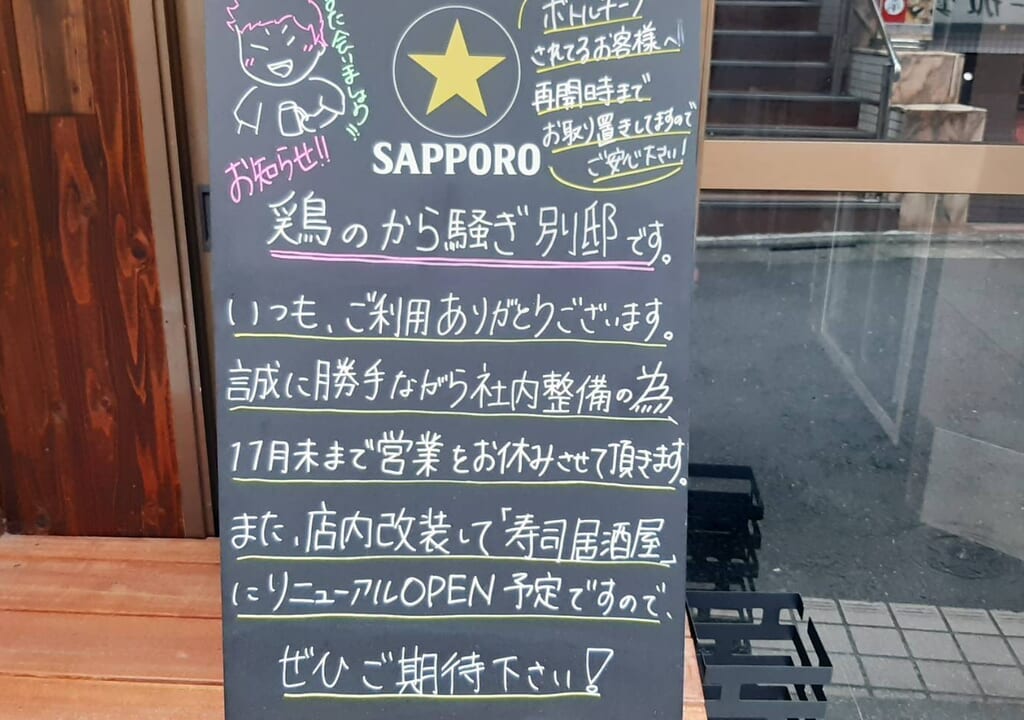 また会いましょう!!
お知らせ!!
SAPPORO
ボトルキープ
されてるお客様へ!!
再開時まで
お取り置きしてますので
ご安心下さい!
鶏のから騒ぎ別邸です。
いつも、ご利用ありがとうございます。
誠に勝手ながら社内整備の為、
11月末まで営業をお休みさせて頂きます。
また、店内改装して「寿司居酒屋」
にリニューアルOPEN予定ですので、
ぜひご期待下さい!